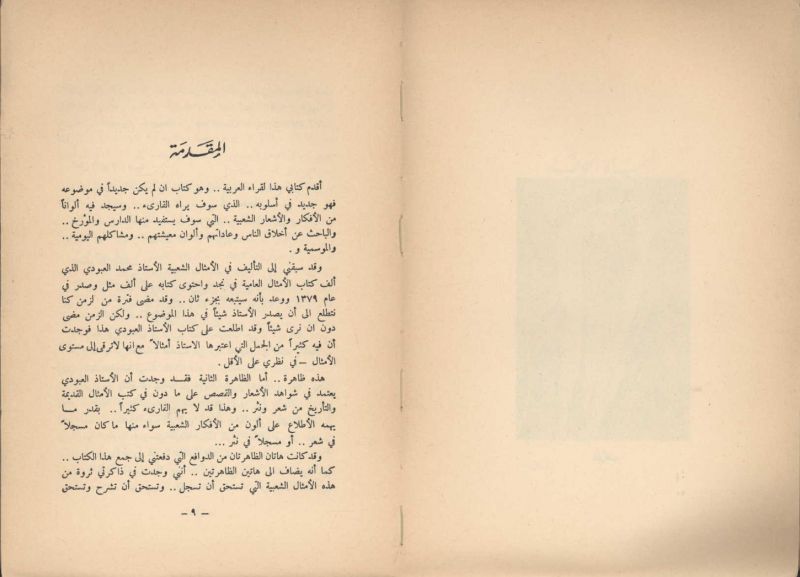 المقدمة
أقدم كتابي هذا لقراء العربية .. وهو كتاب ان لم يكن جديداً في موضوعه
فهو جديد في أسلوبه .. الذي سوف يراه القارىء .. وسيجد فيه ألواناً
من الأفكار والأشعار الشعبية .. التي سوف يستفيد منها الدارس والمؤرخ ..
والباحث عن أخلاق الناس وعاداتهم وألوان معيشتهم .. ومشاكلهم اليومية ..
والموسمية و .
وقد سبقني إلى التأليف في الأمثال الشعبية الأستاذ محمد العبودي الذي
ألف كتاب الأمثال العامية في نجد واحتوى كتابه على ألف مثل وصدر في
عام ١٣٧٩ ووعد بأنه سيتبعه بجزء ثان .. وقد مضى فترة من لزمن كنا
نتطلع الى أن يصدر الأستاذ شيئاً في هذا الموضوع .. ولكن الزمن مضى
دون ان نرى شيئاً وقد اطلعت على كتاب الأستاذ العبودي هذا فوجدت
أن فيه كثيراً من الجمل التي اعتبرها الاستاذ أمثالاً مع انها لا ترقى إلى مستوى
الأمثال – في نظري على الأقل .
هذه ظاهرة .. أما الظاهرة الثانية فقد وجدت أن الأستاذ العبودي
يعتمد في شواهد الأشعار والقصص على ما دون في كتب الأمثال القديمة
والتأريخ من شعر ونثر .. وهذا قد لا يهم القارىء كثيراً .. بقدر ما
يهمه الأطلاع على ألون من الأفكار الشعبية سواء منها ما كان مسجلاً
في شعر .. أو مسجلاً في نثر ...
وقد كانت هاتان الظاهرتان من الدوافع التي دفعتني إلى جمع هذا الكتاب ..
كما أنه يضاف الى هاتين الظاهرتين .. أنني وجدت في ذاكرتي ثروة من
هذه الأمثال الشعبية التي تستحق أن تسجل .. وتستحق أن تشرح وتستحق
– ٩ –